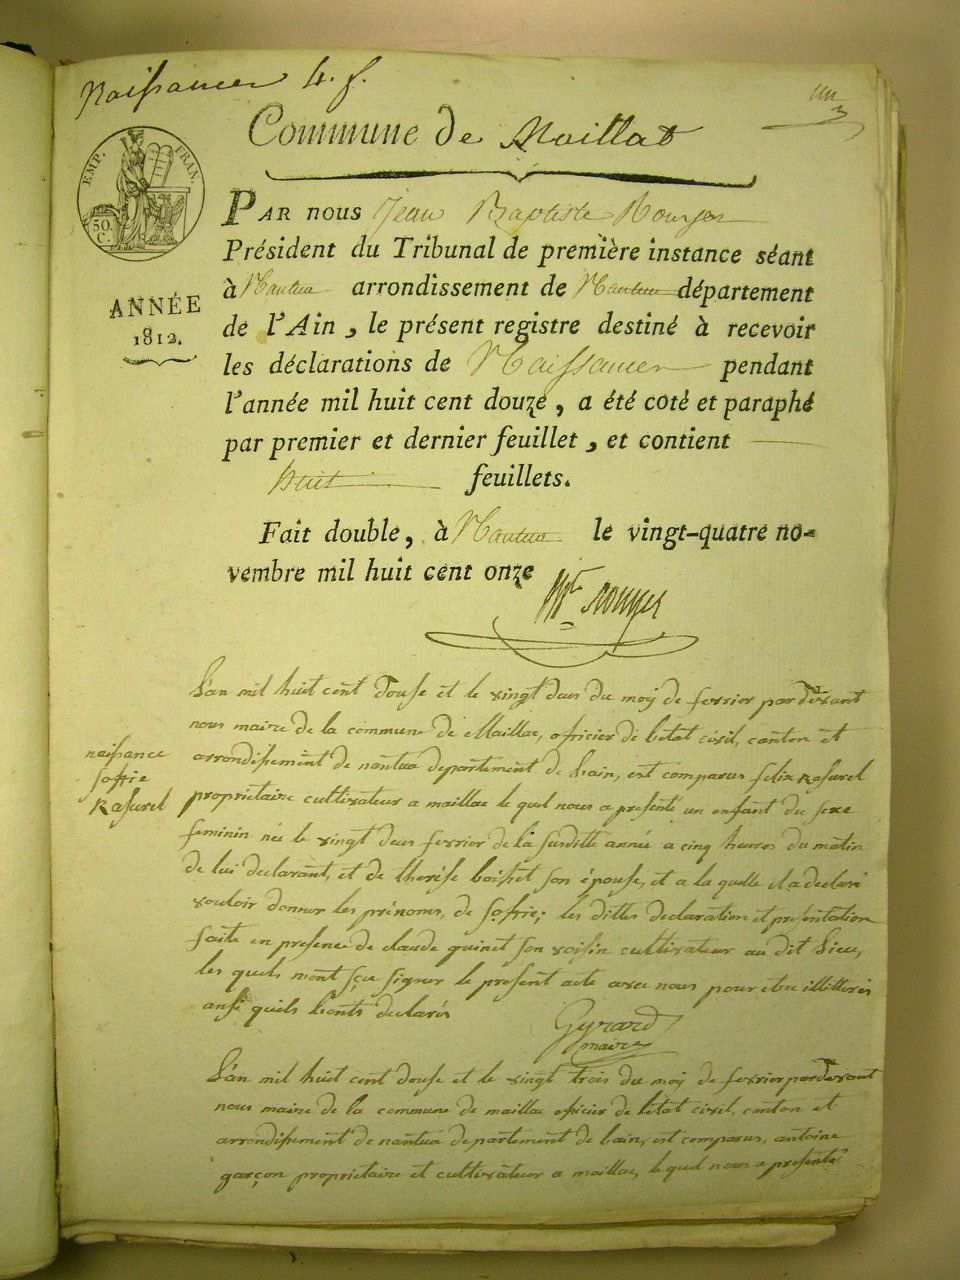 Naissances 4. f.
un
Commune de Maillat
EMP. FRAN.
50. C.
ANNÉE
1812.
PAR nous Jean Baptiste Rouyer
Président du Tribunal de première instance séant
à Nantua arrondissement de Nantua département
de l'Ain, le présent registre destiné à recevoir
les déclarations de Naissances pendant
l'année mil huit cent douze, a été coté et paraphé
par premier et dernier feuillet, et contient
huit feuillets.
Fait double, à Nantua le vingt-quatre no-
vembre mil huit cent onze
Rouyer
L'an mil huit cent douse et le vingt deus du moy de fevrier pardevant
nous maire de la commune de Maillac, officier de letat civil, canton et
arrondissement de nantua departement de lain, est comparus felix Rasurel
propriétaire cultivateur a maillac le quel nous a presenté un enfant du sexe
feminin née le vingt deus fevrier de la susditte année a cinq heures du matin
de lui declarant, et de therése boisset son épouse, et a la quelle il a declaré
vouloir donner les prénoms, de soffie; les dittes declaration et presentation
faite en presence de claude guinet son voisin cultivateur au dit lieu,
les quels nont sçu signer le present acte avec nous pour etre illitterés
ansi quils lonts declarés
naissance
soffie
Rasurel
Gyrard
maire
L'an mil huit cent douse et le vingt trois du moy de fevrier pardevant
nous maire de la commune de maillac officier de letat civil, canton et
arrondissement de nantua departement de lain, est comparus, antoine
garçon propriétaire et cultivateur a maillac, le quel nous a presenté